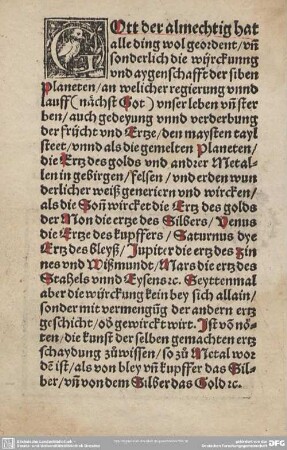 GOtt der almechtig hat
alle ding wol geordent / vñ
sonderlich die wyrckunng
vnd aygenschafft der siben
Planeten / an welicher regierung vnnd
lauff (nåchst Got) vnser leben vñ ster
ben / auch gedeyung vnnd verderbung
der frücht vnd Ertze / den maysten tayl
steet / vnnd als die gemelten Planeten /
die Ertz des golds vnd andrer Metal-
len in gebirgen / felsen / vnd erden wun
derlicher weiß generiern vnd wircken /
als die Soñ wircket die Ertz des golds
der Mon die ertze des Silbers / Venus
die Ertze des kupffers / Saturnus dye
Ertz des bleyß / Jupiter die ertz des zin
nes vnd Wißmundt / Mars die ertz des
Stahels vnnd Eysens ꝛc. Seyttenmal
aber die würckung kein bey sich allain /
sonder mit vermengūg der andern ertz
geschicht / od̕ gewirckt wirt. Ist vō nô-
ten / die kunst der selben gemachten ertz
schaydung zůwissen / so zů Metal wor
dē ist / als von bley vñ kupffer das Sil-
ber / vñ von dem Silber das Gold ꝛc.